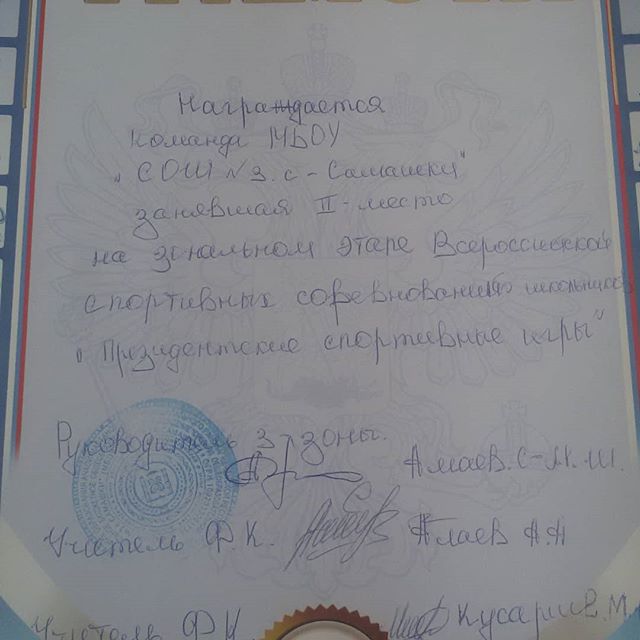 Награждается
команда МБОУ
"СОШ №3. с-Самашки"
занявшая II-место
на зональном этапе Всероссийской
спортивных соревнований школьников
"Президентские спортивные игры"
Руководитель 3-зоны.
Алиаев. С-М.Ш.
Учитель Ф.К. Алаев А.А
Учитель Ф.К.